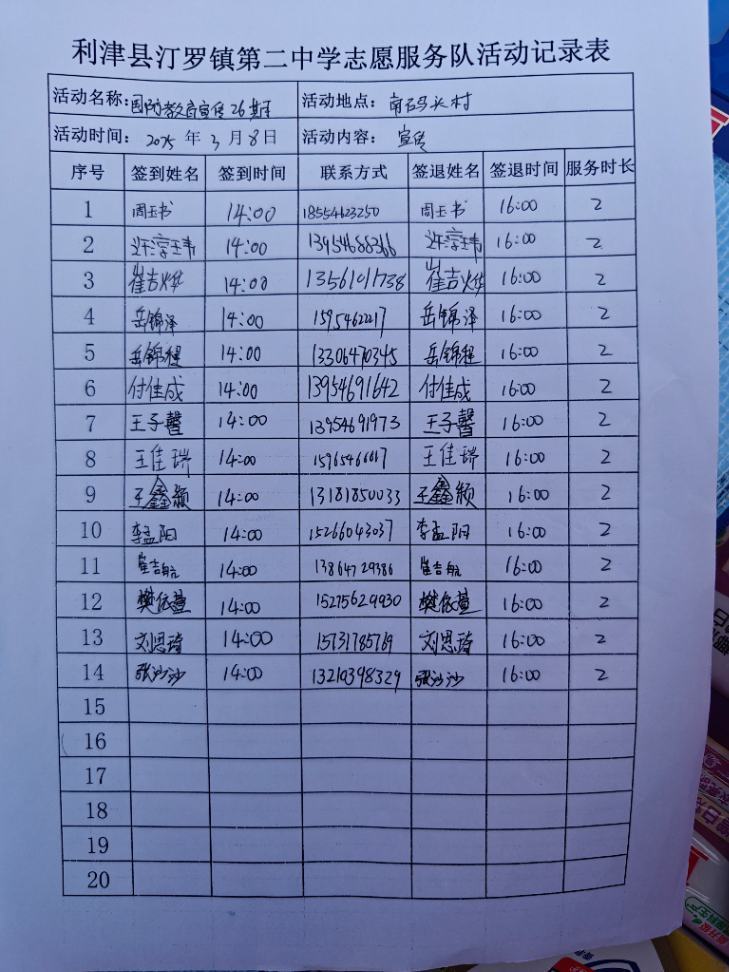 利津县汀罗镇第二中学志愿服务队活动记录表
活动名称:国防教育宣传26期 活动地点:南码头村
活动时间: 2025 年 3 月 8 日 活动内容: 宣传
序号 签到姓名 签到时间 联系方式 签退姓名 签退时间 服务时长
1 周玉书 14:00 18554623250 周玉书 16:00 2
2 许淳玮 14:00 13954688366 许淳玮 16:00 2
3 崔吉烨 14:00 13561011738 崔吉烨 16:00 2
4 岳锦泽 14:00 1595462217 岳锦泽 16:00 2
5 岳锦程 14:00 13306470345 岳锦程 16:00 2
6 付佳成 14:00 13954691642 付佳成 16:00 2
7 王子馨 14:00 13954691973 王子馨 16:00 2
8 王佳瑞 14:00 王佳瑞 16:00 2
9 王鑫颖 14:00 13181850033 王鑫颖 16:00 2
10 李孟阳 14:00 15266043037 李孟阳 16:00 2
11 崔吉航 14:00 13864729386 崔吉航 16:00 2
12 樊依萱 14:00 15275629930 樊依萱 16:00 2
13 刘思琦 14:00 刘思琦 16:00 2
14 张沙沙 14:00 13210398329 张沙沙 16:00 2
15
16
17
18
19
20